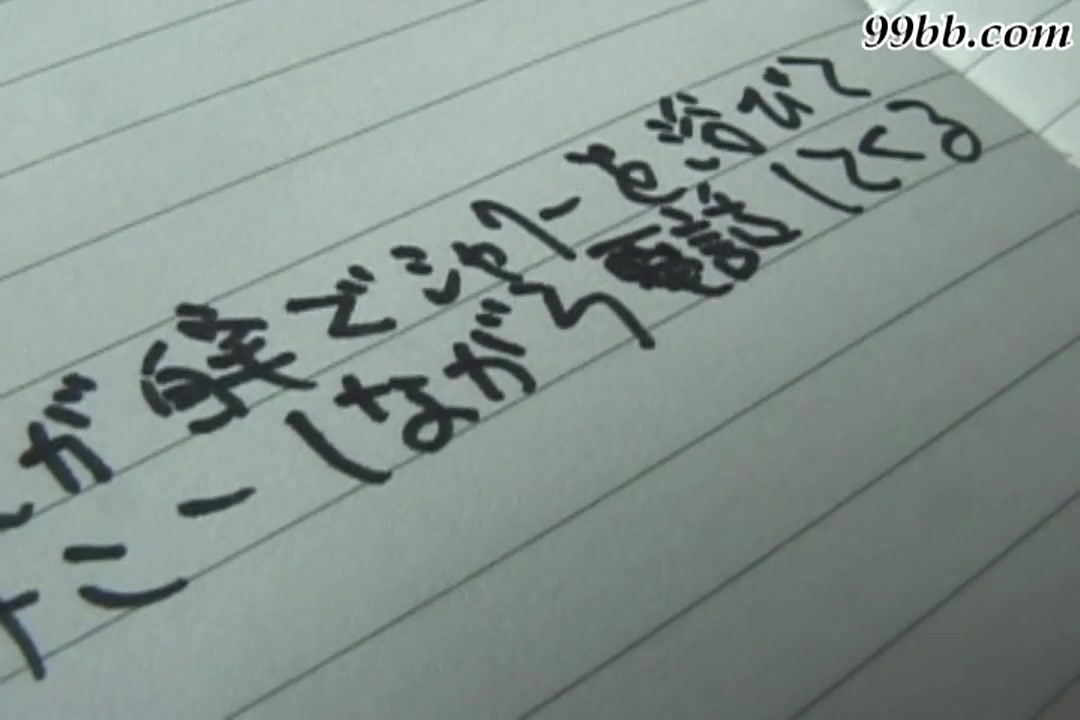 99bb.com
が裸でシャワーを浴びて
ナニーしながら電話してくる